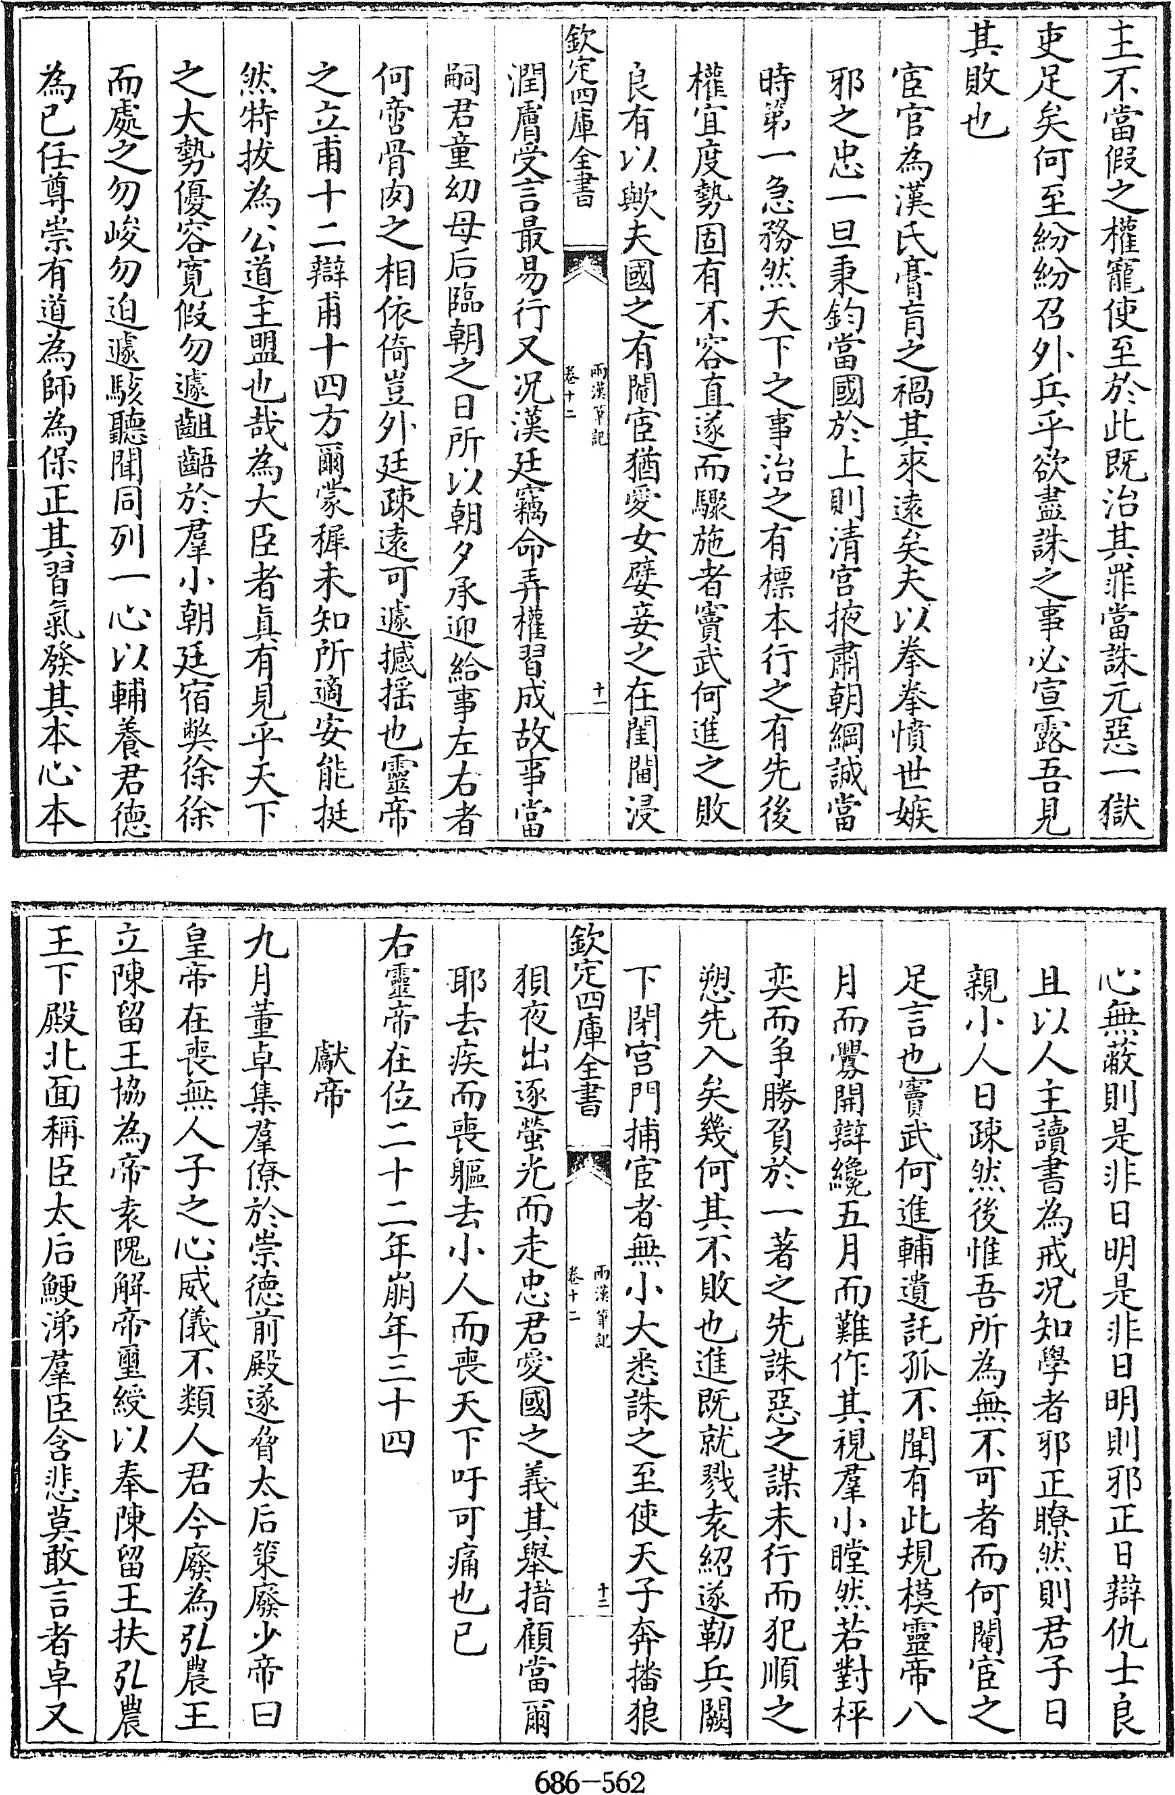 主不當假之權寵使至於此既治其罪當誅元惡一獄
吏足矣何至紛紛召外兵乎欲盡誅之事必宣露吾見
其敗也
宦官為漢氏膏肓之禍其來遠矣夫以拳拳憤世嫉
邪之忠一旦秉鈞當國於上則清宮掖肅朝綱誠當
時第一急務然天下之事治之有標本行之有先後
權宜度勢固有不容直遂而驟施者竇武何進之敗
良有以歟夫國之有閹宦猶愛女嬖妾之在閨闥浸
欽定四庫全書
兩漢筆記
卷十二
十一
潤膚受言最易行又况漢廷竊命弄權習成故事當
嗣君童幼母后臨朝之日所以朝夕承迎給事左右者
何啻骨肉之相依倚豈外廷疎遠可遽撼揺也靈帝
之立甫十二辯甫十四方爾蒙穉未知所適安能挺
然特拔為公道主盟也哉為大臣者真有見乎天下
之大勢優容寬假勿遽齟齬於羣小朝廷宿弊徐徐
而處之勿峻勿迫遽駭聽聞同列一心以輔養君德
為已任尊崇有道為師為保正其習氣發其本心本
心無蔽則是非日明是非日明則邪正日辯仇士良
且以人主讀書為戒况知學者邪正瞭然則君子日
親小人日疎然後惟吾所為無不可者而何閹宦之
足言也竇武何進輔遺託孤不聞有此規模靈帝八
月而釁開辯纔五月而難作其視羣小瞠然若對枰
奕而争勝負於一著之先誅惡之謀未行而犯順之
愬先入矣幾何其不敗也進既就戮袁紹遂勒兵闕
下閉宮門捕宦者無小大悉誅之至使天子奔播狼
欽定四庫全書
兩漢筆記
卷十二
十二
狽夜出逐螢光而走忠君愛國之義其舉措顧當爾
耶去疾而喪軀去小人而喪天下吁可痛也已
右靈帝在位二十二年崩年三十四
獻帝
九月董卓集羣僚於崇德前殿遂脅太后策廢少帝曰
皇帝在喪無人子之心威儀不類人君今廢為弘農王
立陳留王協為帝袁隗解帝璽綬以奉陳留王扶弘農
王下殿北面稱臣太后鯁涕羣臣含悲莫敢言者卓又
686-562